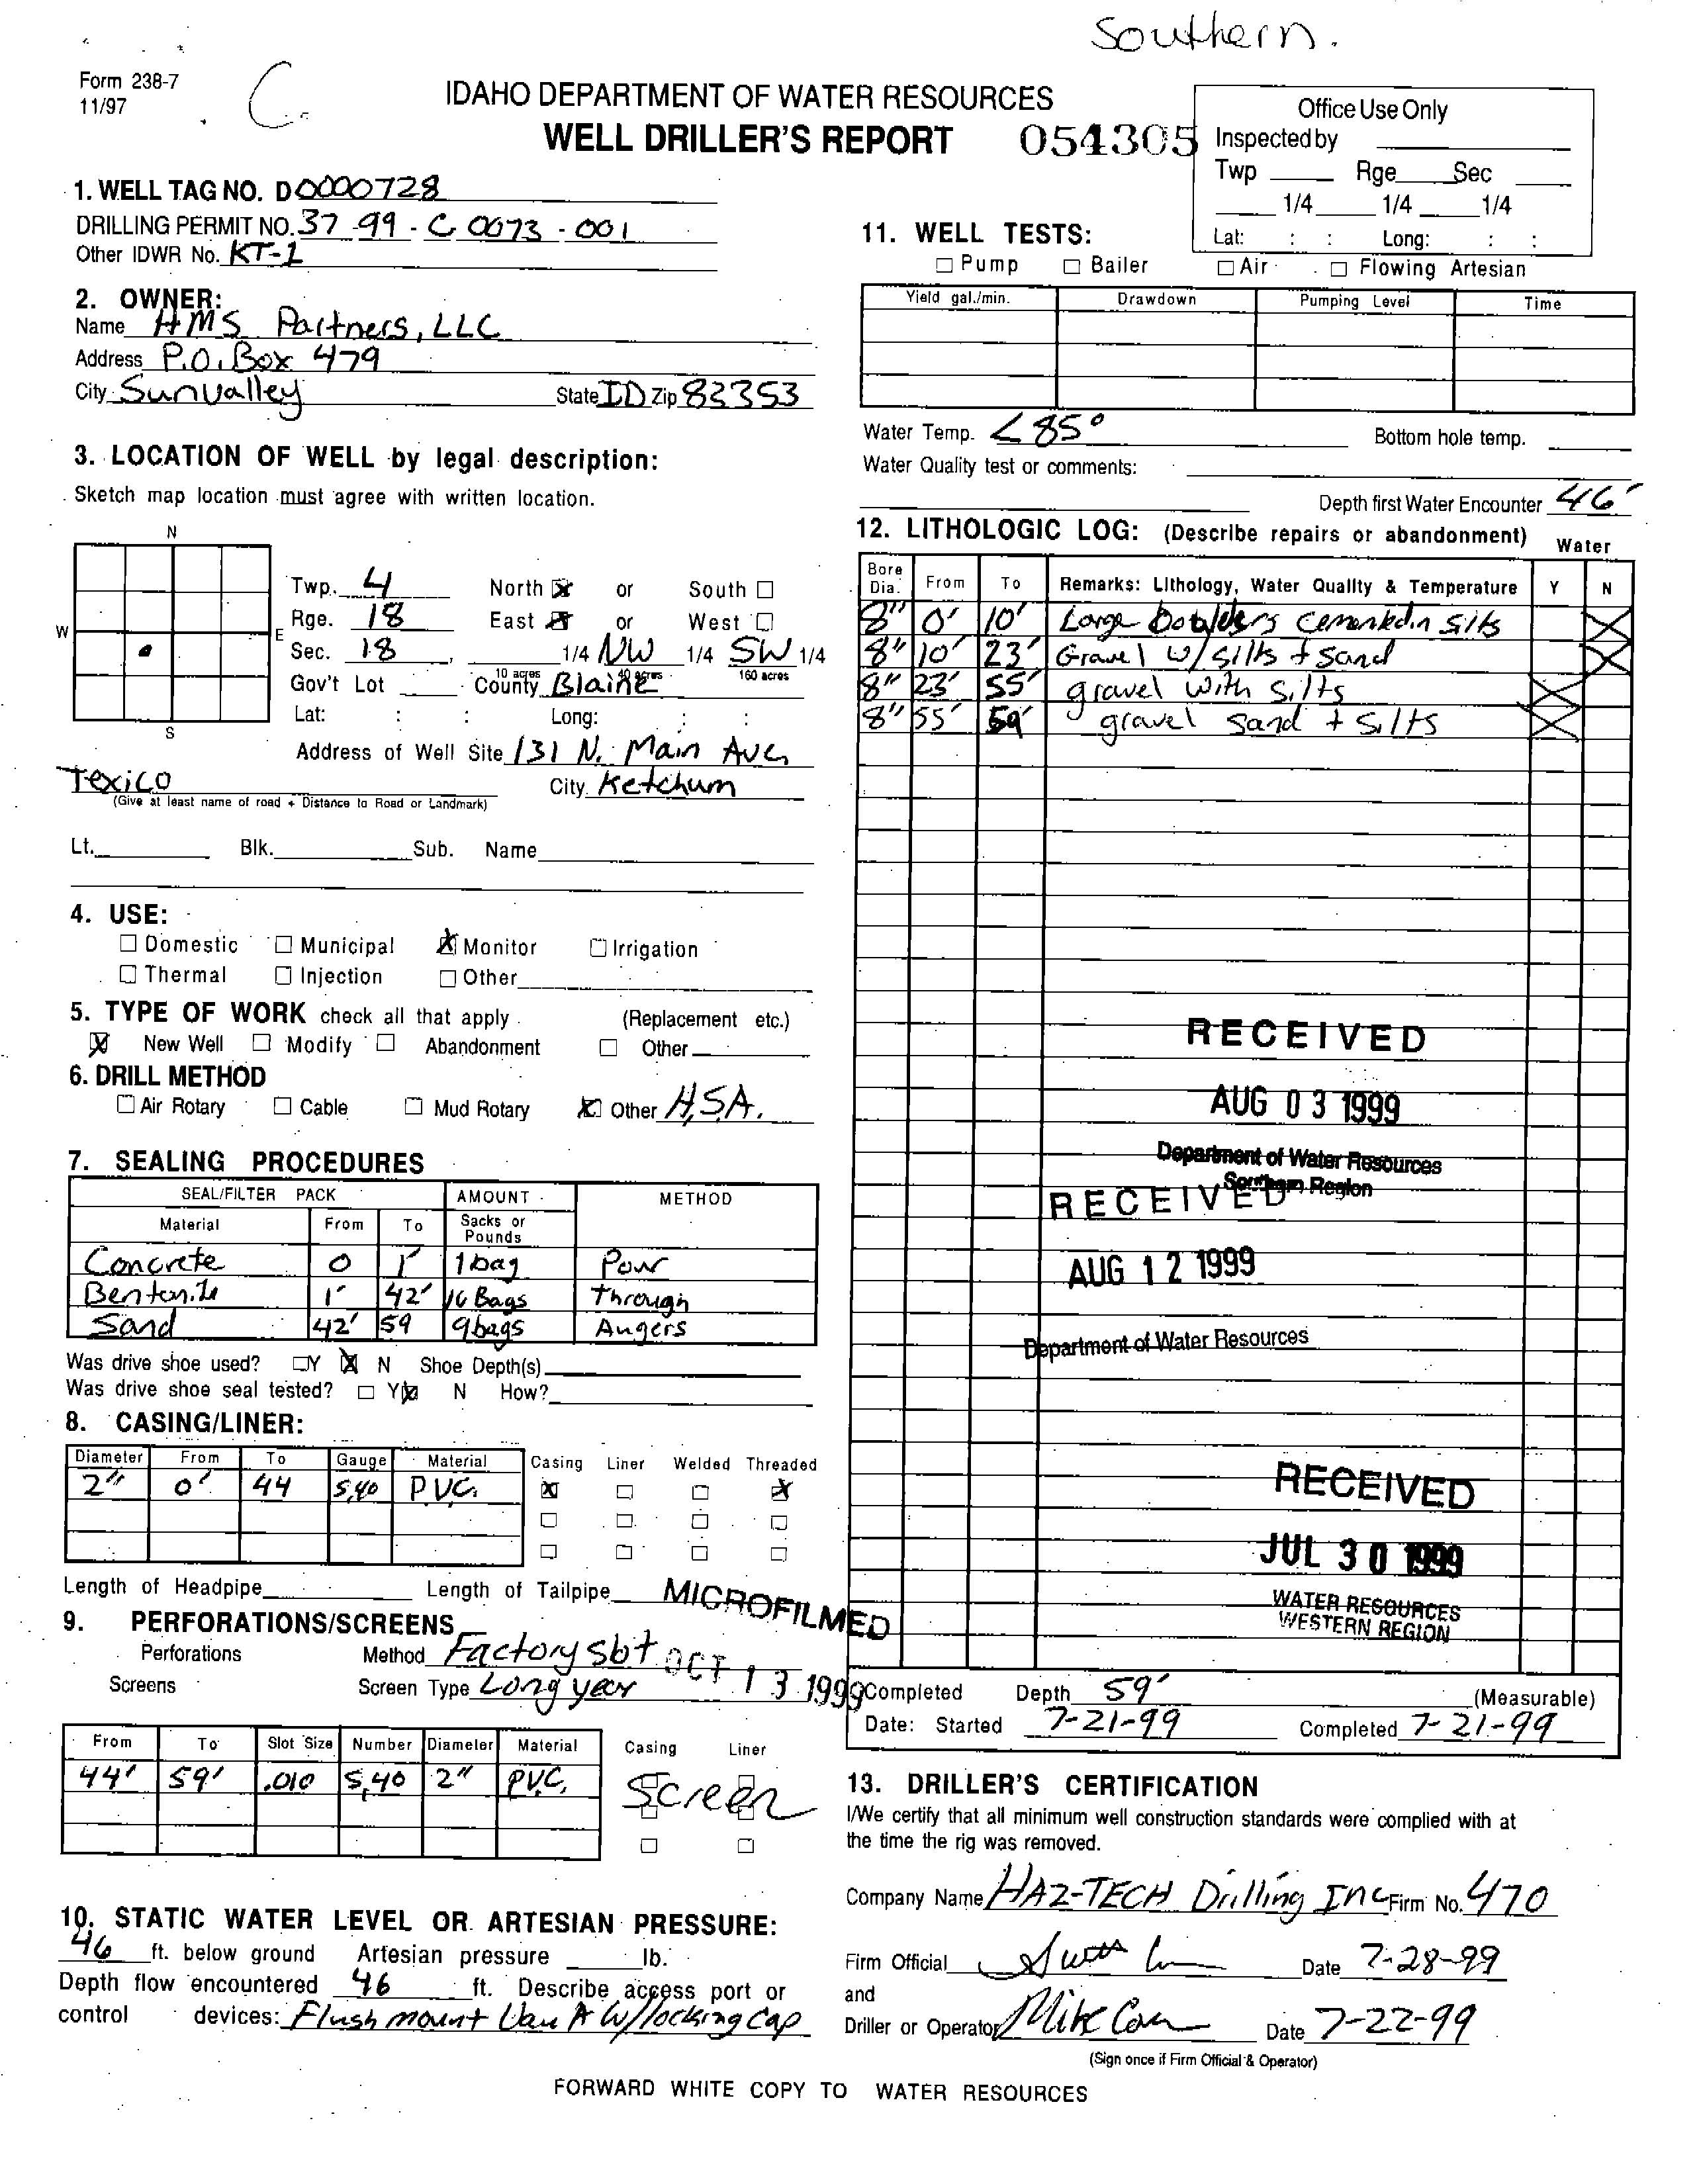 Southern.
Form 238-7
11/97
C.
IDAHO DEPARTMENT OF WATER RESOURCES
WELL DRILLER'S REPORT
054305
Office Use Only
Inspected by
Twp Rge Sec
1/4 1/4 1/4
Lat: : : Long: : :
1. WELL TAG NO. D0000728
DRILLING PERMIT NO. 37-99-C 0073-001
Other IDWR No. KT-1
2. OWNER:
Name HMS Partners, LLC
Address P.O. Box 479
City Sunvalley State ID Zip 83353
3. LOCATION OF WELL by legal description:
Sketch map location must agree with written location.
N
W
E
S
Twp. 4 North or South
Rge. 18 East or West
Sec. 18, 1/4 NW 1/4 SW 1/4
10 acres 40 acres 160 acres
Gov't Lot County Blaine
Lat: : : Long: : :
Address of Well Site 131 N. Main Ave,
Texico City Ketchum
(Give at least name of road + Distance to Road or Landmark)
Lt. Blk. Sub. Name
4. USE:
Domestic Municipal Monitor Irrigation
Thermal Injection Other
5. TYPE OF WORK check all that apply (Replacement etc.)
New Well Modify Abandonment Other
6. DRILL METHOD
Air Rotary Cable Mud Rotary Other H.S.A.
7. SEALING PROCEDURES
SEAL/FILTER PACK AMOUNT METHOD
Material From To Sacks or Pounds
Concrete 0 1' 1 bag Pour
Bentonite 1' 42' 16 Bags Through
Sand 42' 59 9 bags Augers
Was drive shoe used? Y N Shoe Depth(s)
Was drive shoe seal tested? Y N How?
8. CASING/LINER:
Diameter From To Gauge Material Casing Liner Welded Threaded
2" 0' 44 S,40 PVC.
Length of Headpipe Length of Tailpipe
MICROFILMED
OCT 13 1999
9. PERFORATIONS/SCREENS
Perforations Method Factory slot
Screens Screen Type Longyear
From To Slot Size Number Diameter Material Casing Liner
44' 59' .010 S,40 2" PVC, Screen
10. STATIC WATER LEVEL OR ARTESIAN PRESSURE:
46 ft. below ground Artesian pressure lb.
Depth flow encountered 46 ft. Describe access port or
control devices: Flush mount W/locking cap
11. WELL TESTS:
Pump Bailer Air Flowing Artesian
Yield gal./min. Drawdown Pumping Level Time
Water Temp. <85° Bottom hole temp.
Water Quality test or comments:
Depth first Water Encounter 46'
12. LITHOLOGIC LOG: (Describe repairs or abandonment) Water
Bore Dia. From To Remarks: Lithology, Water Quality & Temperature Y N
8" 0' 10' Large boulders cemented in silts
8" 10' 23' Gravel w/ silts + sand
8" 23' 55' gravel with silts
8" 55' 59' gravel sand + silts
RECEIVED
AUG 03 1999
Department of Water Resources
Southern Region
RECEIVED
AUG 12 1999
Department of Water Resources
RECEIVED
JUL 30 1999
WATER RESOURCES
WESTERN REGION
Completed Depth 59' (Measurable)
Date: Started 7-21-99 Completed 7-21-99
13. DRILLER'S CERTIFICATION
I/We certify that all minimum well construction standards were complied with at
the time the rig was removed.
Company Name HAZ-TECH Drilling Inc Firm No. 470
Firm Official Date 7-28-99
and
Driller or Operator Mike Date 7-22-99
(Sign once if Firm Official & Operator)
FORWARD WHITE COPY TO WATER RESOURCES